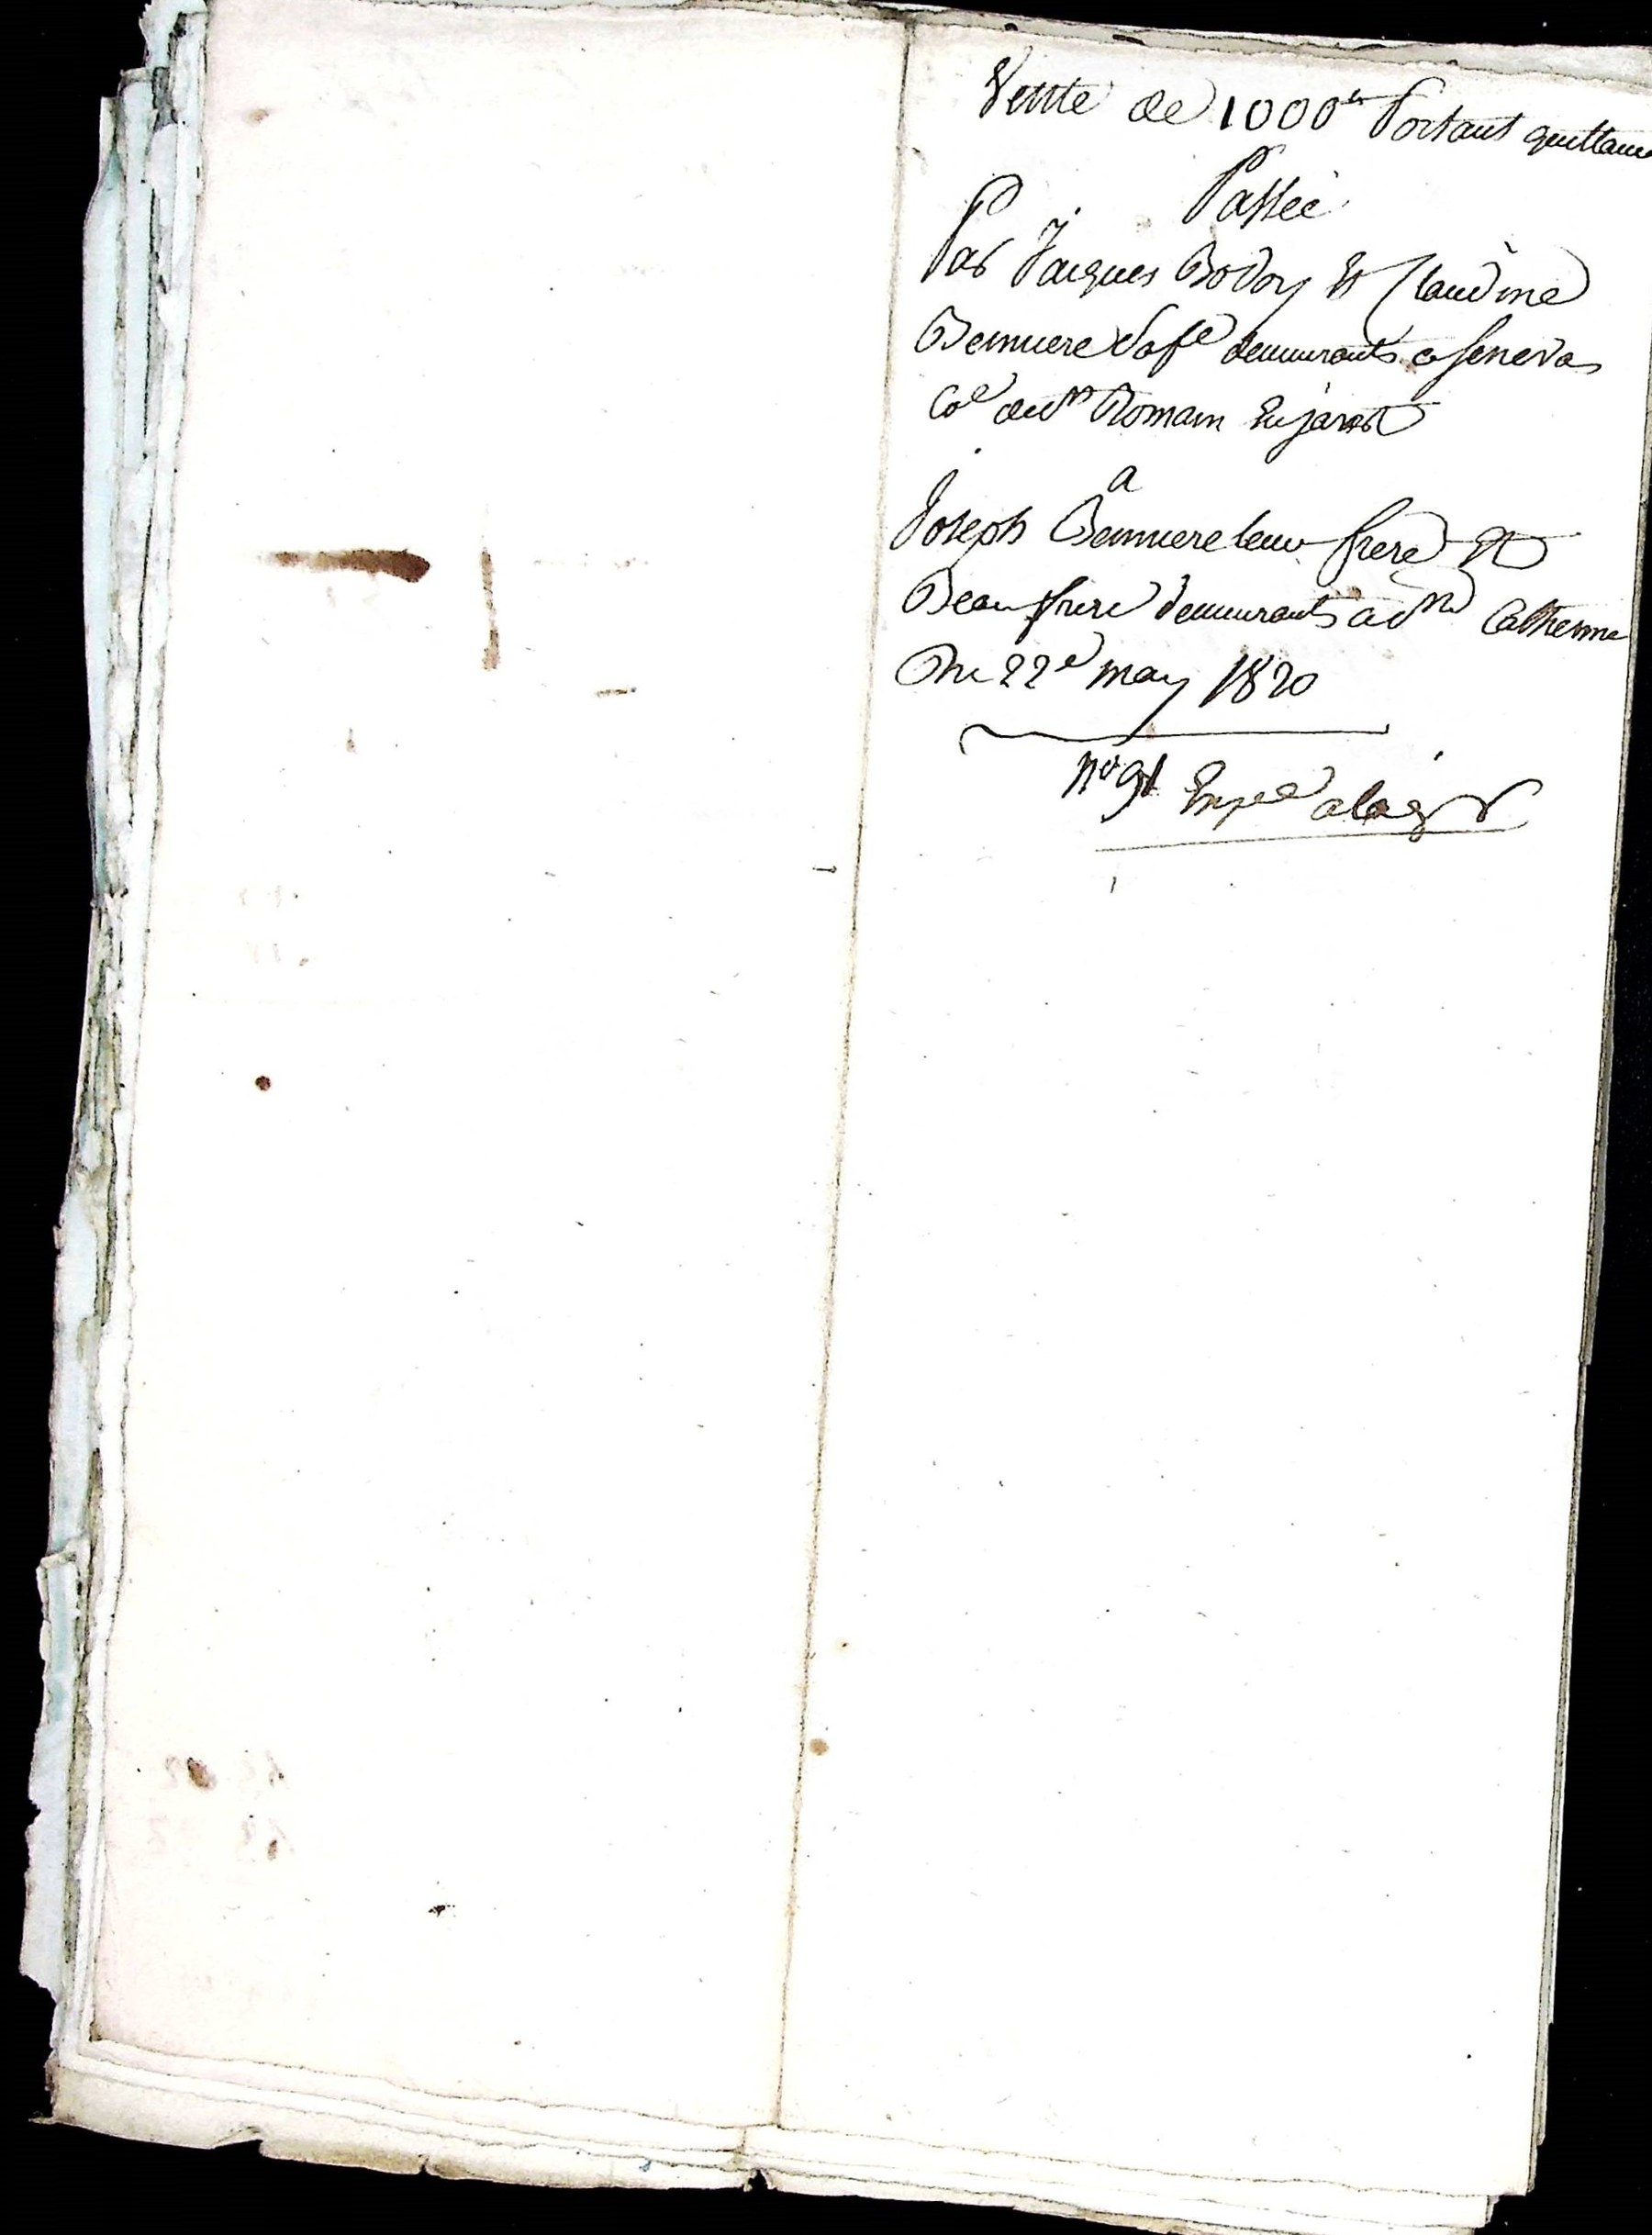 Vente de 1000 fr Portant quittance
Passée
Par Jacques Bodoy Et Claudine
Bernuere Sa fe demeurants a senevas
Coe de St Romain En jarest
a
Joseph Bernuere leur frere Et
Beau frere demeurants a Ste Catherine
Du 22e may 1820
No 91 Expee